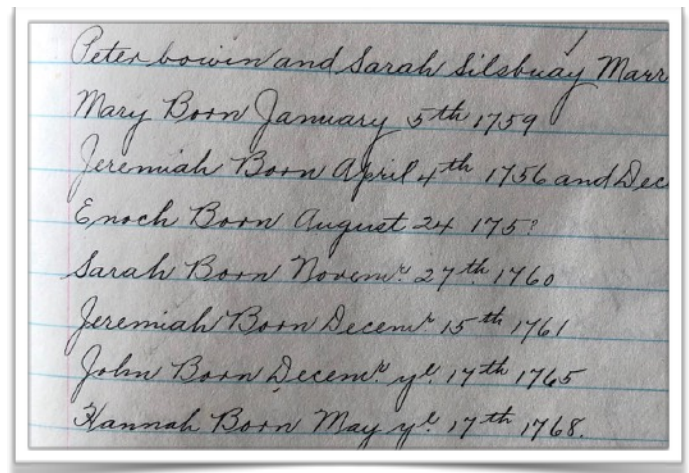 Peter bowin and Sarah Silsbuay Marr
Mary Born January 5th 1759
Jeremiah Born April 4th 1756 and Dec
Enoch Born August 24 175?
Sarah Born Novemr 27th 1760
Jeremiah Born Decemr 15th 1761
John Born Decemr ye 17th 1765
Hannah Born May ye 17th 1768.